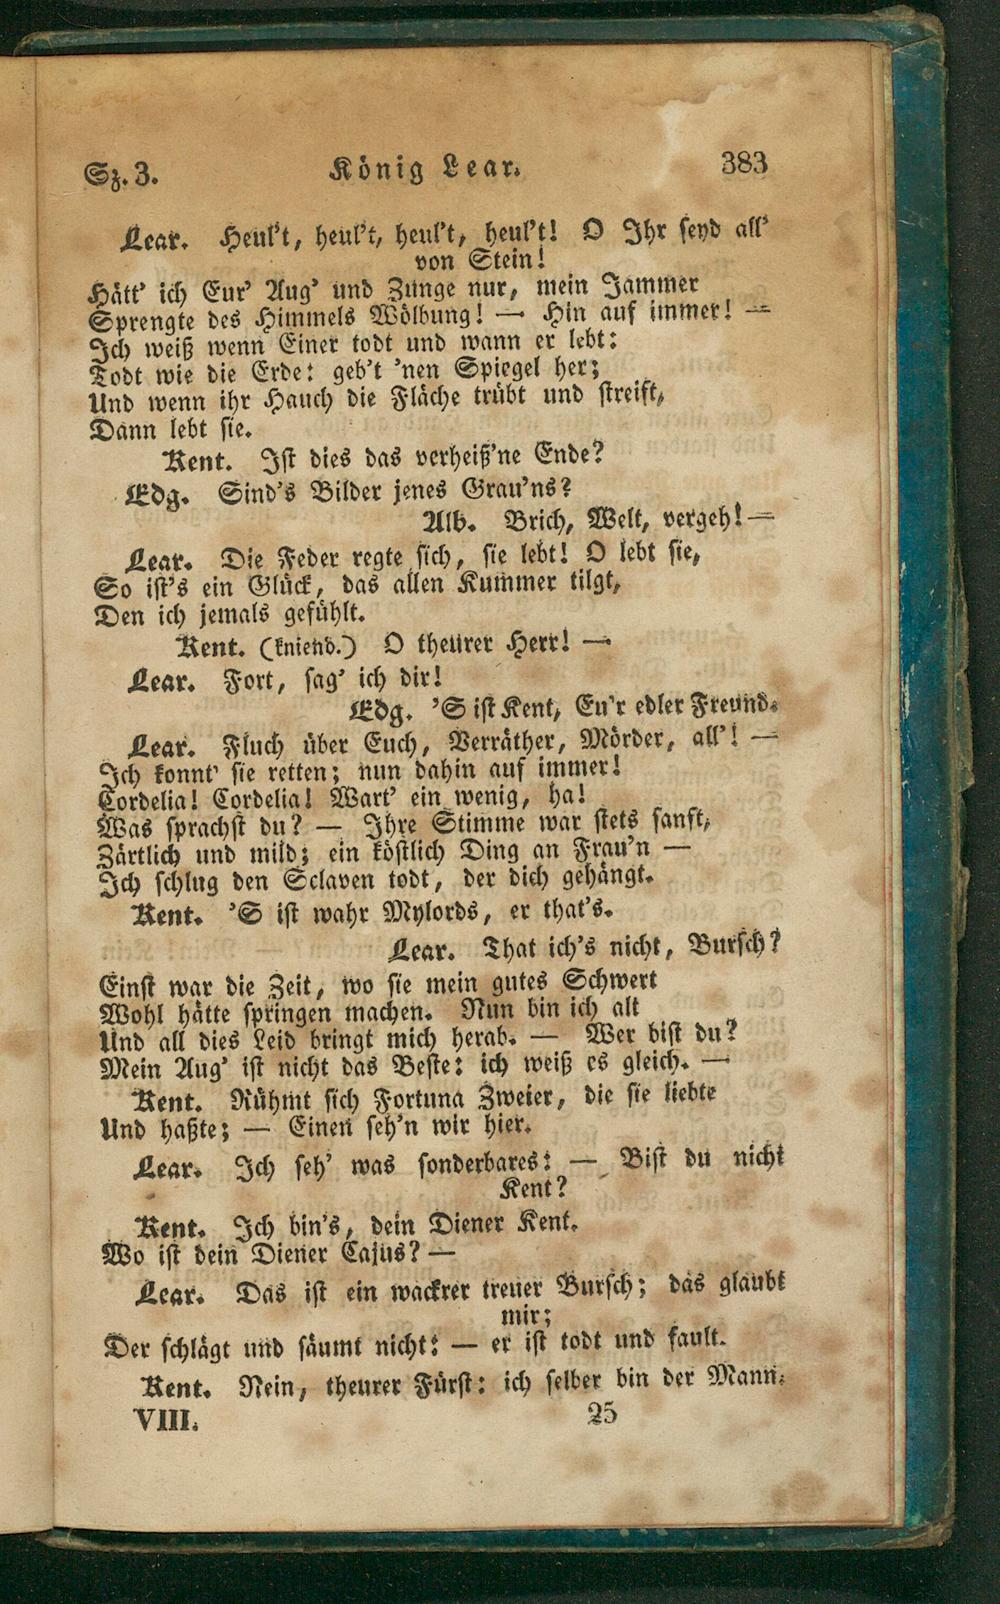 Sz. 3. König Lear. 383
Lear. Heul't, heul't, heul't, heul't! O Ihr seyd all'
von Stein!
Hätt' ich Eur' Aug' und Zunge nur, mein Jammer
Sprengte des Himmels Wölbung! — Hin auf immer! —
Ich weiß wenn Einer todt und wann er lebt:
Todt wie die Erde: geb't 'nen Spiegel her;
Und wenn ihr Hauch die Fläche trübt und streift,
Dann lebt sie.
Kent. Ist dies das verheiß'ne Ende?
Edg. Sind's Bilder jenes Grau'ns?
Alb. Brich, Welt, vergeh! —
Lear. Die Feder regte sich, sie lebt! O lebt sie,
So ist's ein Glück, das allen Kummer tilgt,
Den ich jemals gefühlt.
Kent. (kniend.) O theurer Herr! —
Lear. Fort, sag' ich dir!
Edg. 'S ist Kent, Eu'r edler Freund.
Lear. Fluch über Euch, Verräther, Mörder, all'! —
Ich konnt' sie retten; nun dahin auf immer!
Cordelia! Cordelia! Wart' ein wenig, ha!
Was sprachst du? — Ihre Stimme war stets sanft,
Zärtlich und mild; ein köstlich Ding an Frau'n —
Ich schlug den Sclaven todt, der dich gehängt.
Kent. 'S ist wahr Mylords, er that's.
Lear. That ich's nicht, Bursch?
Einst war die Zeit, wo sie mein gutes Schwert
Wohl hätte springen machen. Nun bin ich alt
Und all dies Leid bringt mich herab. — Wer bist du?
Mein Aug' ist nicht das Beste: ich weiß es gleich. —
Kent. Rühmt sich Fortuna Zweier, die sie liebte
Und haßte; — Einen seh'n wir hier.
Lear. Ich seh' was sonderbares: — Bist du nicht
Kent?
Kent. Ich bin's, dein Diener Kent.
Wo ist dein Diener Cajus? —
Lear. Das ist ein wackrer treuer Bursch; das glaubt
mir;
Der schlägt und säumt nicht: — er ist todt und fault.
Kent. Nein, theurer Fürst: ich selber bin der Mann.
VIII. 25